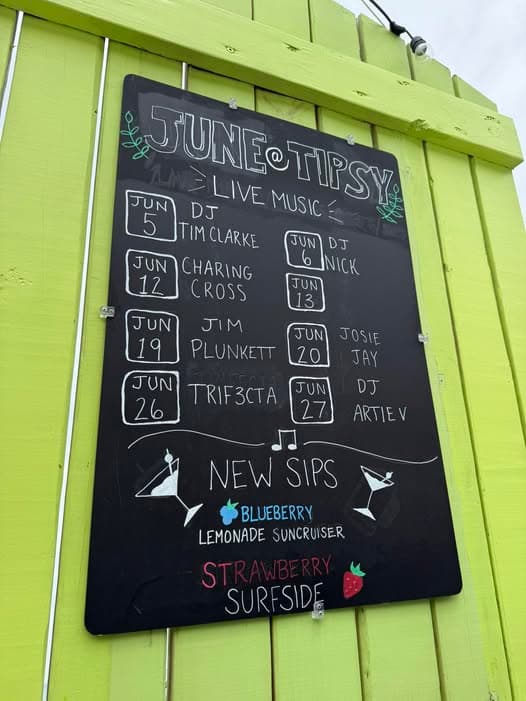 JUNE @ TIPSY
LIVE MUSIC
JUN 5 DJ TIM CLARKE
JUN 6 DJ NICK
JUN 12 CHARING CROSS
JUN 13
JUN 19 JIM PLUNKETT
JUN 20 JOSIE JAY
JUN 26 TRIF3CTA
JUN 27 DJ ARTIE V
NEW SIPS
BLUEBERRY
LEMONADE SUNCRUISER
STRAWBERRY
SURFSIDE